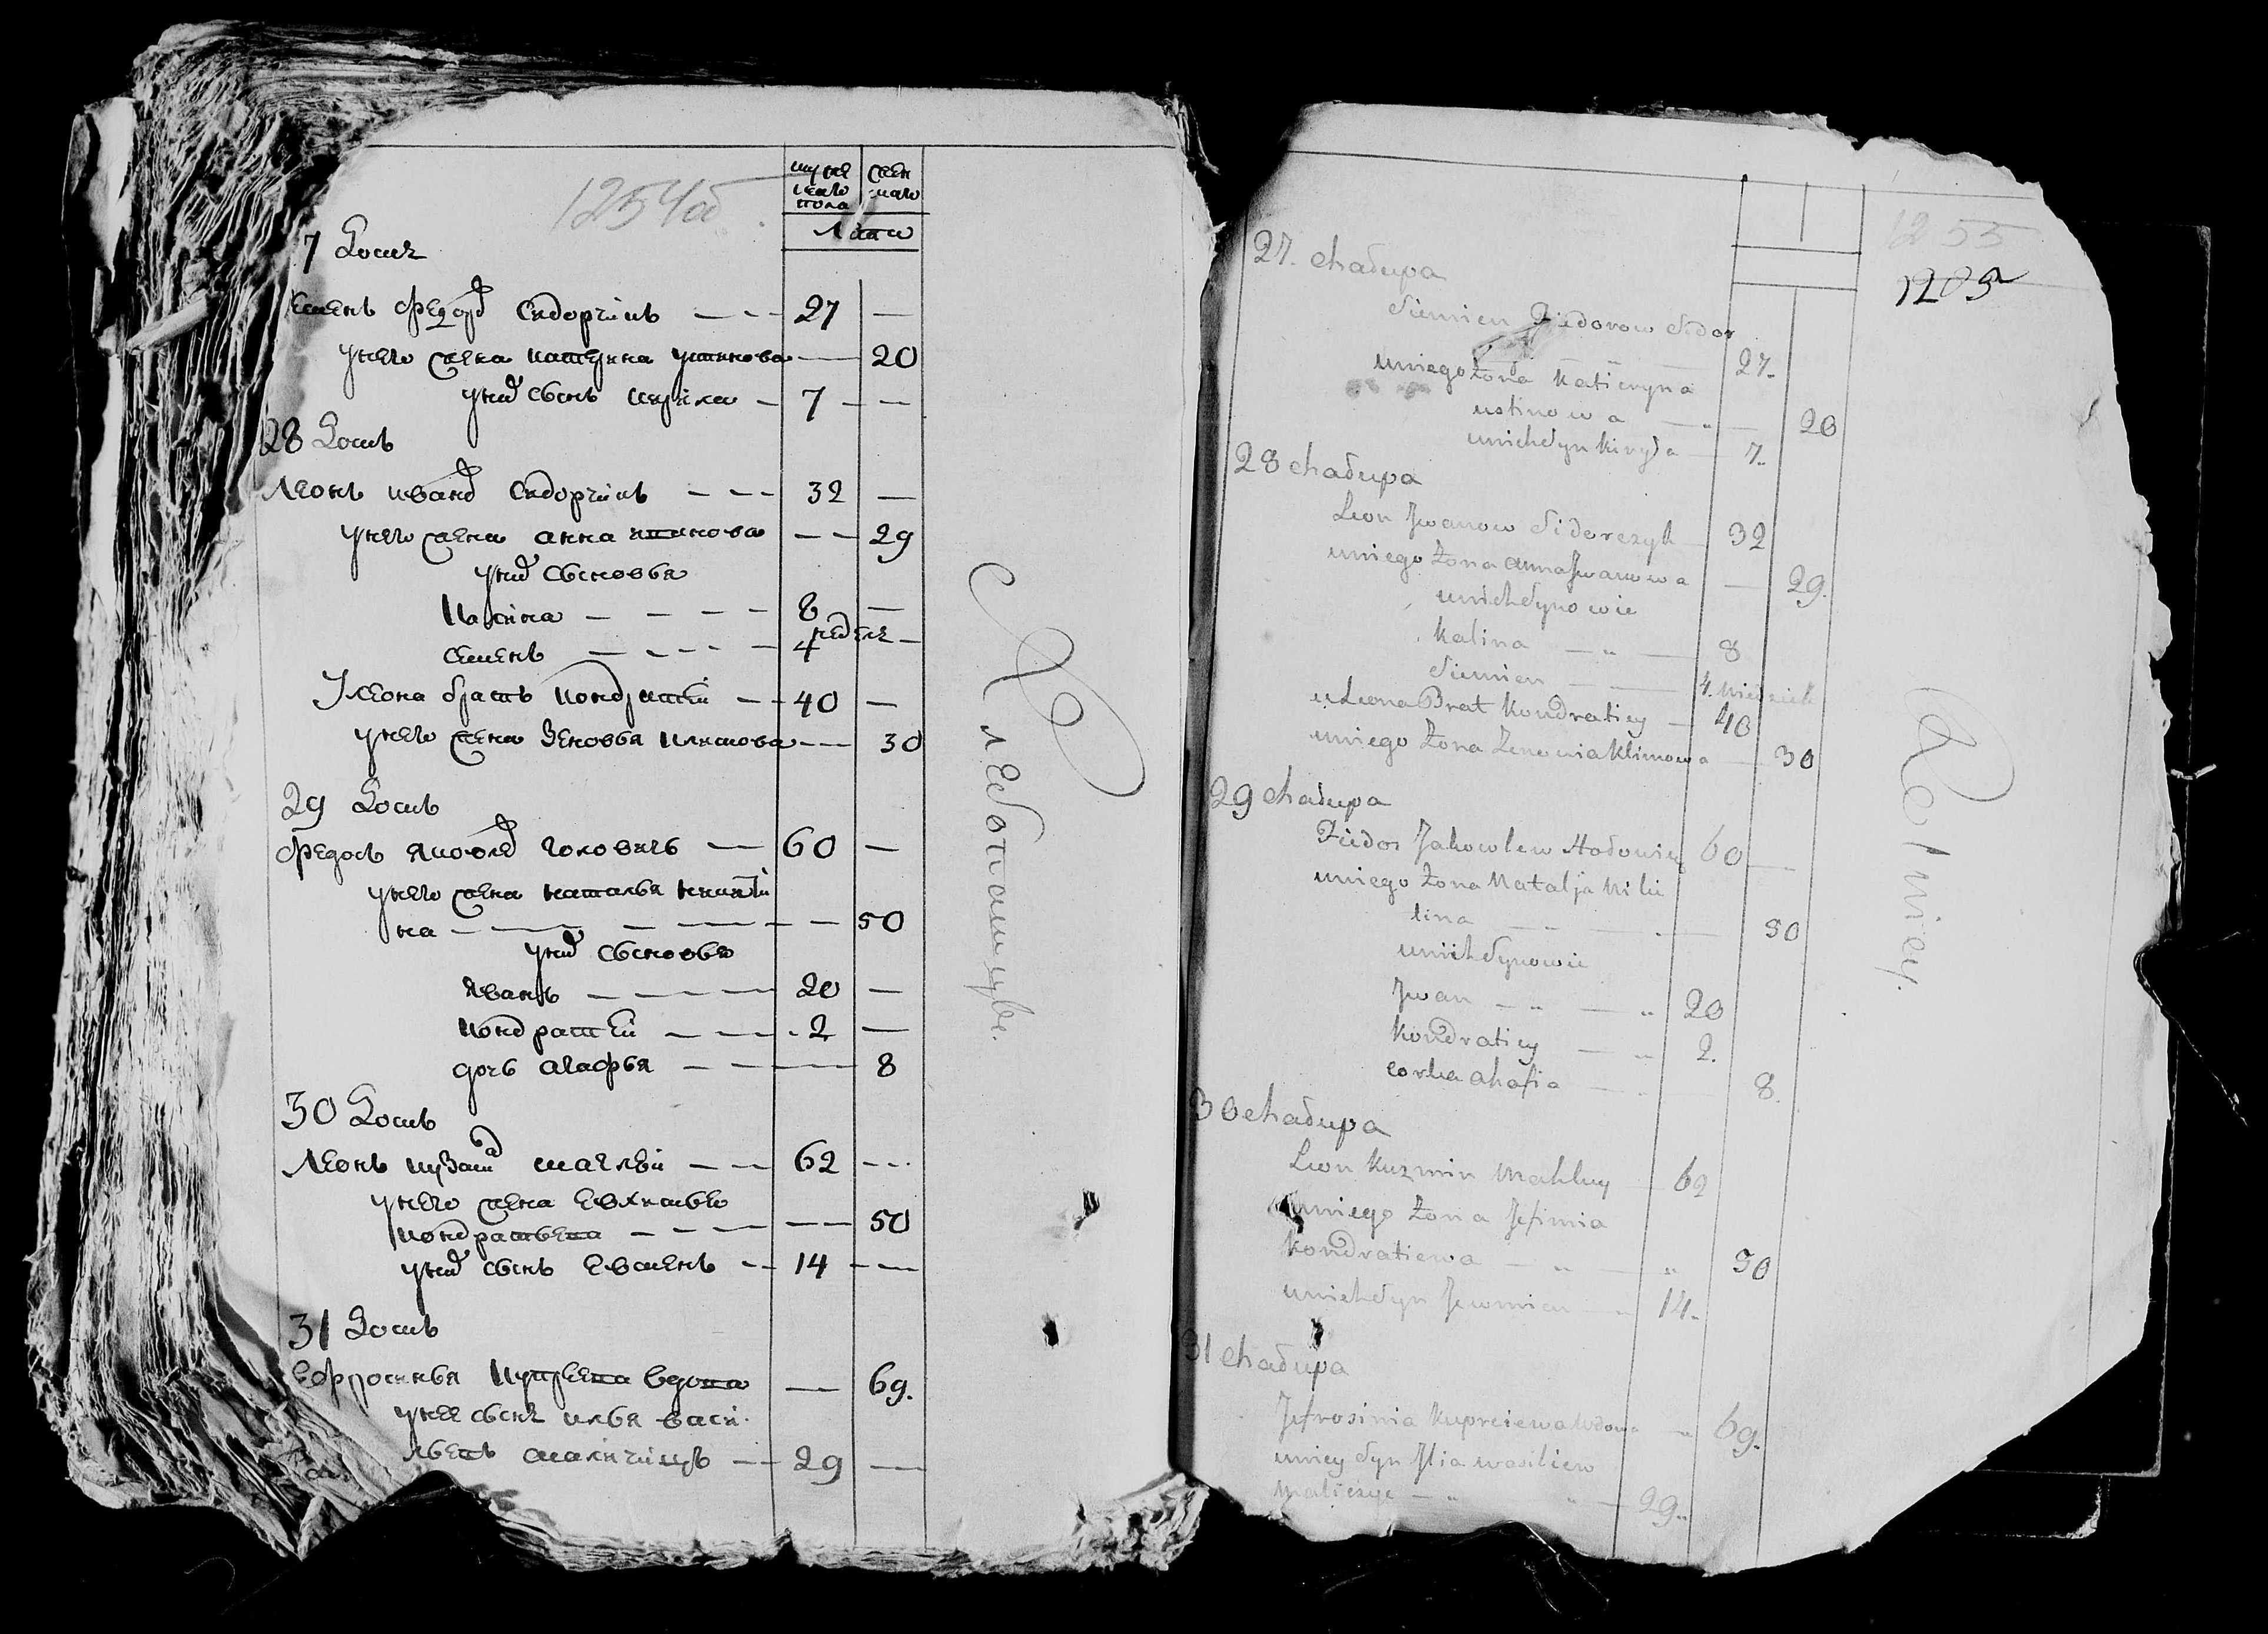 1254об.
муже
скаго
пола
жен
скаго
Лета
7 Домъ
Семенъ Федоров Сидорчикъ — — 27 —
у него жена Катерина Устинова — 20
у них сынъ Кирила — 7 — —
28 Домъ
Леонъ Иванов Сидорчикъ — — — 32 —
у него жена Анна — — 29
у них сыновья
Калина — — — — 8 —
Семенъ — — — — 4 недели —
У Леона братъ Кондратей — — 40 —
у него жена Зеновья Климова — — 30
29 Домъ
Федосъ Яковлев Головичь — — 60 —
у него жена Наталья Никити
на — — — — — 50
у них сыновья
Иванъ — — — — 20 —
Кондратей — — — - 2 —
дочь Агафья — — — 8
30 Домъ
Леонъ Кузмин Маглей — — — 62 - - -
у него жена
Кондратьева — — — — — 50
у них сынъ Евменъ — — 14 — —
31 Домъ
Ефросинья Купреева вдова — 69.
у нее сынъ Илья Васи
льевъ — — 29 —
Хлебопашцы.
1255
1205
27. Chałupa
Siemien Fiedorow Sidor
— — 27.
u niego żona Katieryna
Ustinowa — „ — 20
u nich syn Kiryła — 7.
28 Chałupa
Leon Jwanow Sidorczyk — 32
u niego żona Anna Jwanowa — 29.
u nich synowie
Kalina — „ — 8
Siemien — — 4. niedziel
u Leona Brat Kondratiey — 40
u niego żona Zenowia Klimowa — 30
29 Chałupa
Fiedos Jakowlew Hołowicz 60 —
u niego żona Natalja Niki
tina — „ — „ — 50
u nich synowie
Jwan — „ — „ 20
Kondratiey — „ 2.
corka Ahafia — — 8.
30 Chałupa
Leon Kuzmin Mahley — 62
u niego żona Jefimia
Kondratiewa — „ — „ 50
u nich syn Jewmien — „ 14.
31 Chałupa
Jefrosinia Kupreiewa wdowa — „ 69.
u niey syn Jlia Wasiliew
— „ „ — 29.
Rolniey.